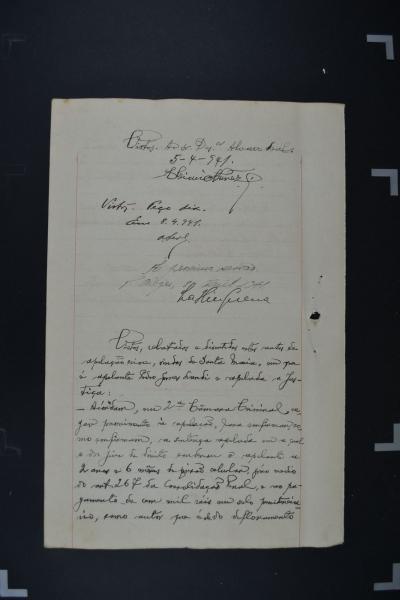 Vistos. Ao Dr. Des.or Alvaro
5-4-941.
Visto. Peço dia.
Em 8.4.941.
Á proxima sessão.
Vistos, relatados e discutidos estes autos de
apelação crime, vindos de Santa Maria, em que
é apelante Pedro e apelada a Jus-
tiça:
— Acórdam, em 2ª Câmara Criminal, ne-
gar provimento à apelação, para confirmar, co-
mo confirmam, a sentença apelada em a qual
o dr. juiz de direito condenou o apelante a
2 anos e 6 mêses de prisão celular, grau médio
do art. 267 da Consolidação Penal, e ao pa-
gamento de cem mil réis em selo penitenciá-
rio, como autor que é do defloramento